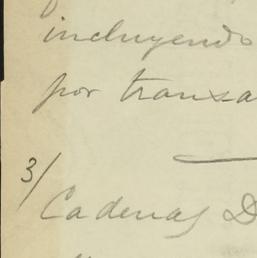 incluyendo
por transa
3/
Cadenas D